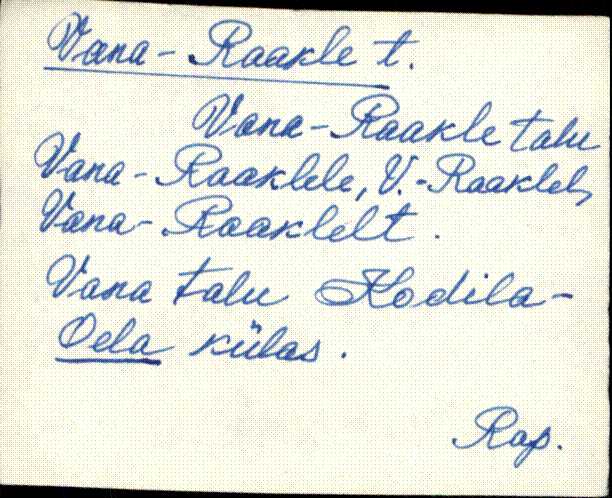 Vana-Raakle t.
Vana-Raakle talu
Vana-Raaklele, V.-Raaklel,
Vana-Raaklelt.
Vana talu Kodila-
Oela külas.
Rap.